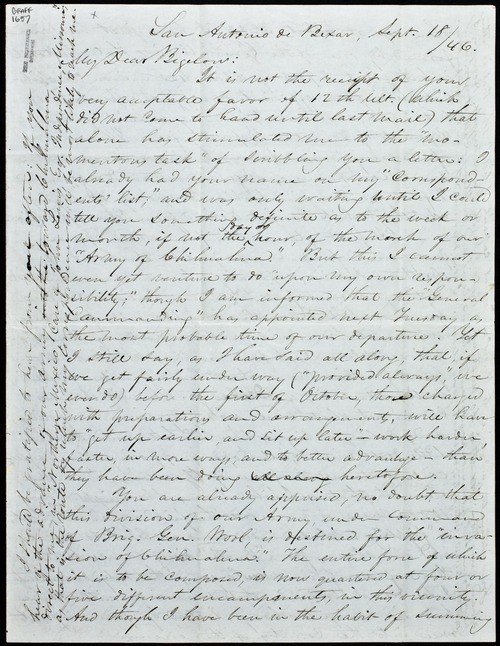 DRAFF
1657
San Antonio de Bexar, Sept. 18/46.
My Dear Bigelow:
It is not the receipt of your
very acceptable favor of 12th ult. (which
did not come to hand until last mail) that
alone has stimulated me to the "mo-
mentous task" of scribbling you a letter: I
already had your name on my "correspond-
ents' list," and was only waiting until I could
tell you something definite as to the week or
month, if not the day or hour, of the march of our
"Army of Chihuahua." But this I cannot
even yet venture to do "upon my own respon-
sibility;" though I am informed that the "General
Commanding" has appointed next Tuesday as
the most probable time of our departure. Yet
I still say, as I have said all along, that, if
we get fairly under way ("provided always," we
ever do) before the first of October, those charged
with preparations and arrangements, will have
to "get up earlier, and sit up later" – work harder,
faster, in more ways, and to better advantage – than
they have been doing heretofore.
You are already apprised, no doubt that
this division of our Army, under command
of Brig. Gen. Wool, is destined for the "inva-
sion of Chihuahua." The entire force of which
it is to be composed, is now quartered at four or
five different encampments, in this vicinity.
And though I have been in the habit of summing
I should be gratified to hear from you often. If you